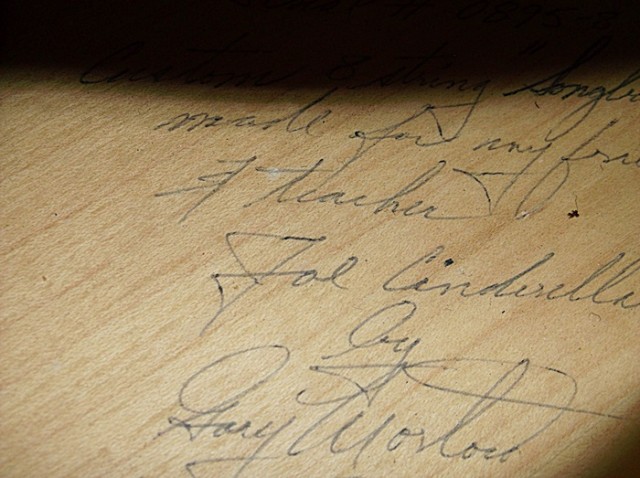 Custom 8 string "Songbi
made for my frie
& teacher
Joe Cinderella
by
Gary Mortoro